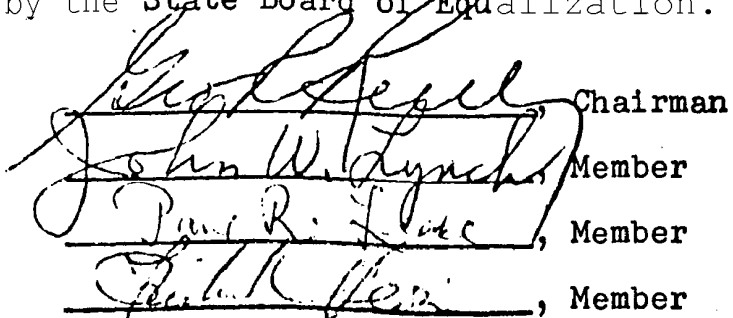 by the State Board of Equalization.
Geo. R. Reilly, Chairman
John W. Lynch, Member
Paul R. Leake, Member
, Member